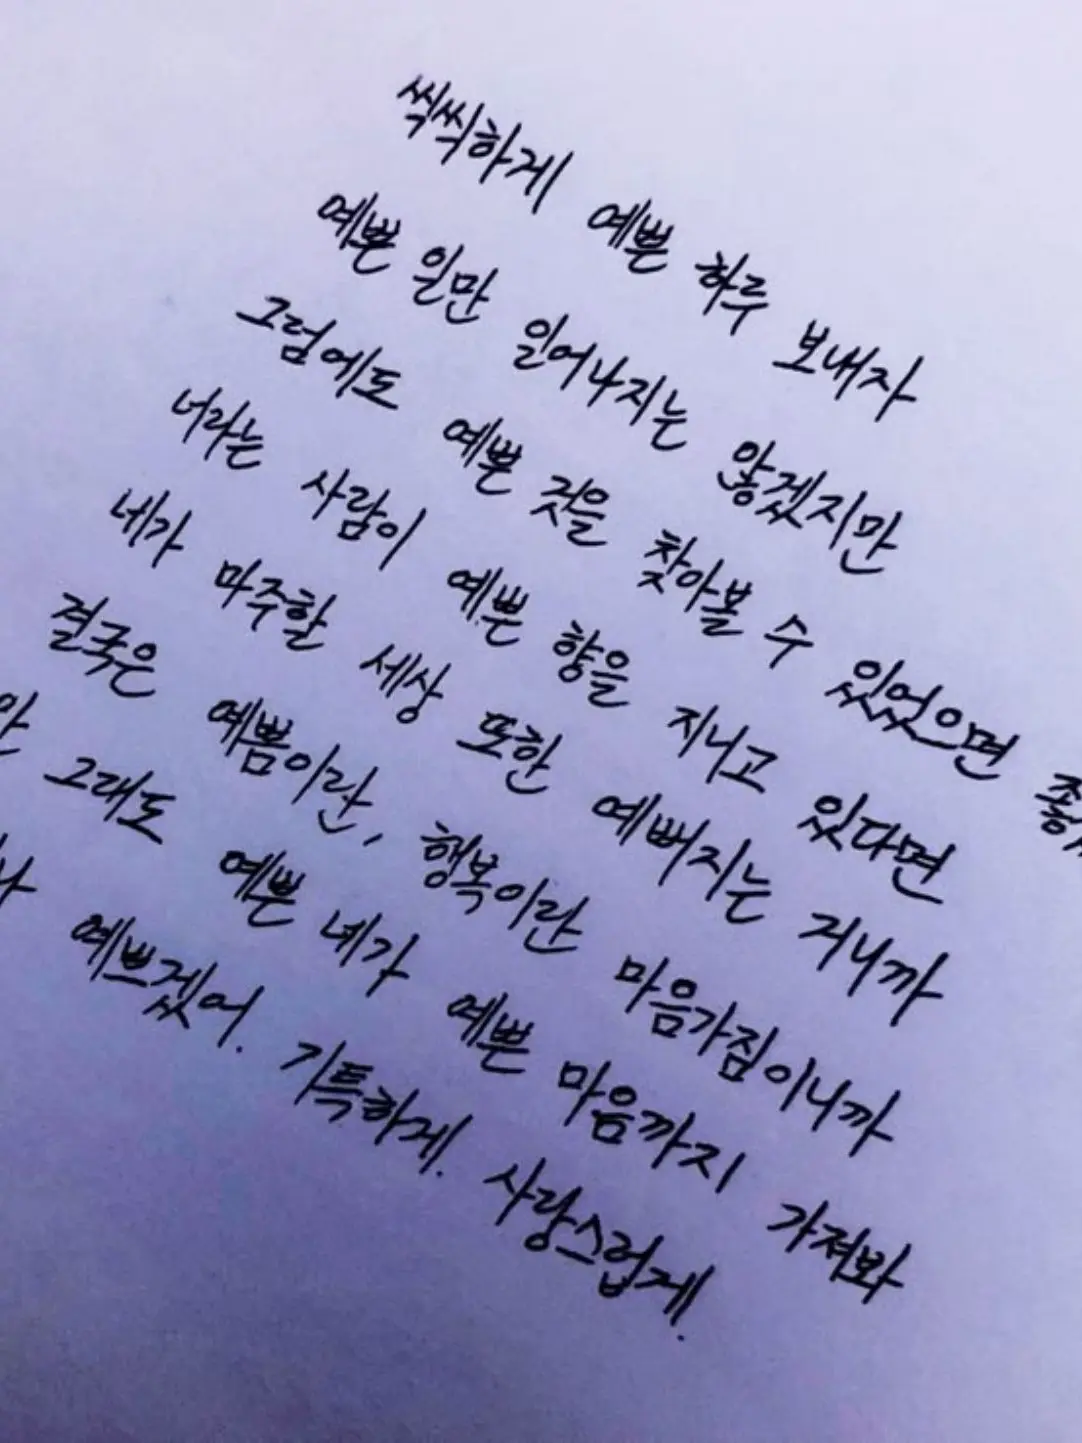 씩씩하게 예쁜 하루 보내자
예쁜 일만 일어나지는 않겠지만
그럼에도 예쁜 것을 찾아볼 수 있었으면
너라는 사람이 예쁜 향을 지니고 있다면
네가 마주할 세상 또한 예뻐지는 거니까
결국은 예쁨이란, 행복이란 마음가짐이니까
그래도 예쁜 네가 예쁜 마음까지 가져봐
예쁘겠어. 기특하게. 사랑스럽게.